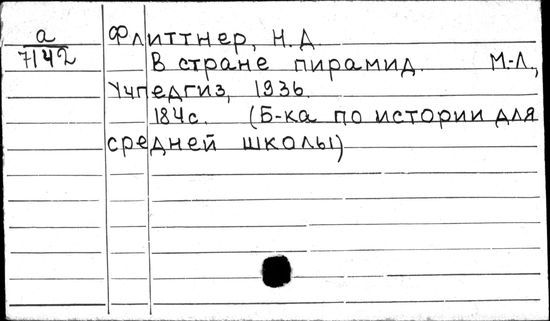 а
7142
Флиттнер, Н.Д.
В стране пирамид. М-Л.,
Учпедгиз, 1936.
184с. (Б-ка по истории для
средней школы)